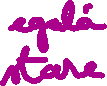 egală
stare